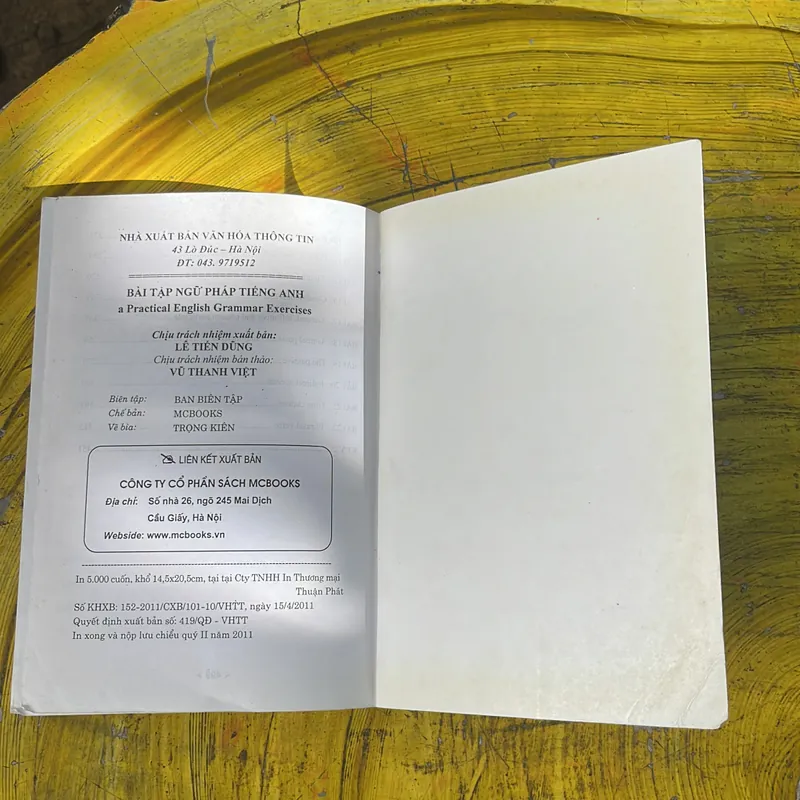 NHÀ XUẤT BẢN VĂN HÓA THÔNG TIN
43 Lò Đúc – Hà Nội
ĐT: 043. 9719512
BÀI TẬP NGỮ PHÁP TIẾNG ANH
a Practical English Grammar Exercises
Chịu trách nhiệm xuất bản:
LÊ TIẾN DŨNG
Chịu trách nhiệm bản thảo:
VŨ THANH VIỆT
Biên tập: BAN BIÊN TẬP
Chế bản: MCBOOKS
Vẽ bìa: TRỌNG KIÊN
LIÊN KẾT XUẤT BẢN
CÔNG TY CỔ PHẦN SÁCH MCBOOKS
Địa chỉ: Số nhà 26, ngõ 245 Mai Dịch
Cầu Giấy, Hà Nội
Webside: www.mcbooks.vn
In 5.000 cuốn, khổ 14,5x20,5cm, tại tại Cty TNHH In Thương mại
Thuận Phát
Số KHXB: 152-2011/CXB/101-10/VHTT, ngày 15/4/2011
Quyết định xuất bản số: 419/QĐ - VHTT
In xong và nộp lưu chiểu quý II năm 2011